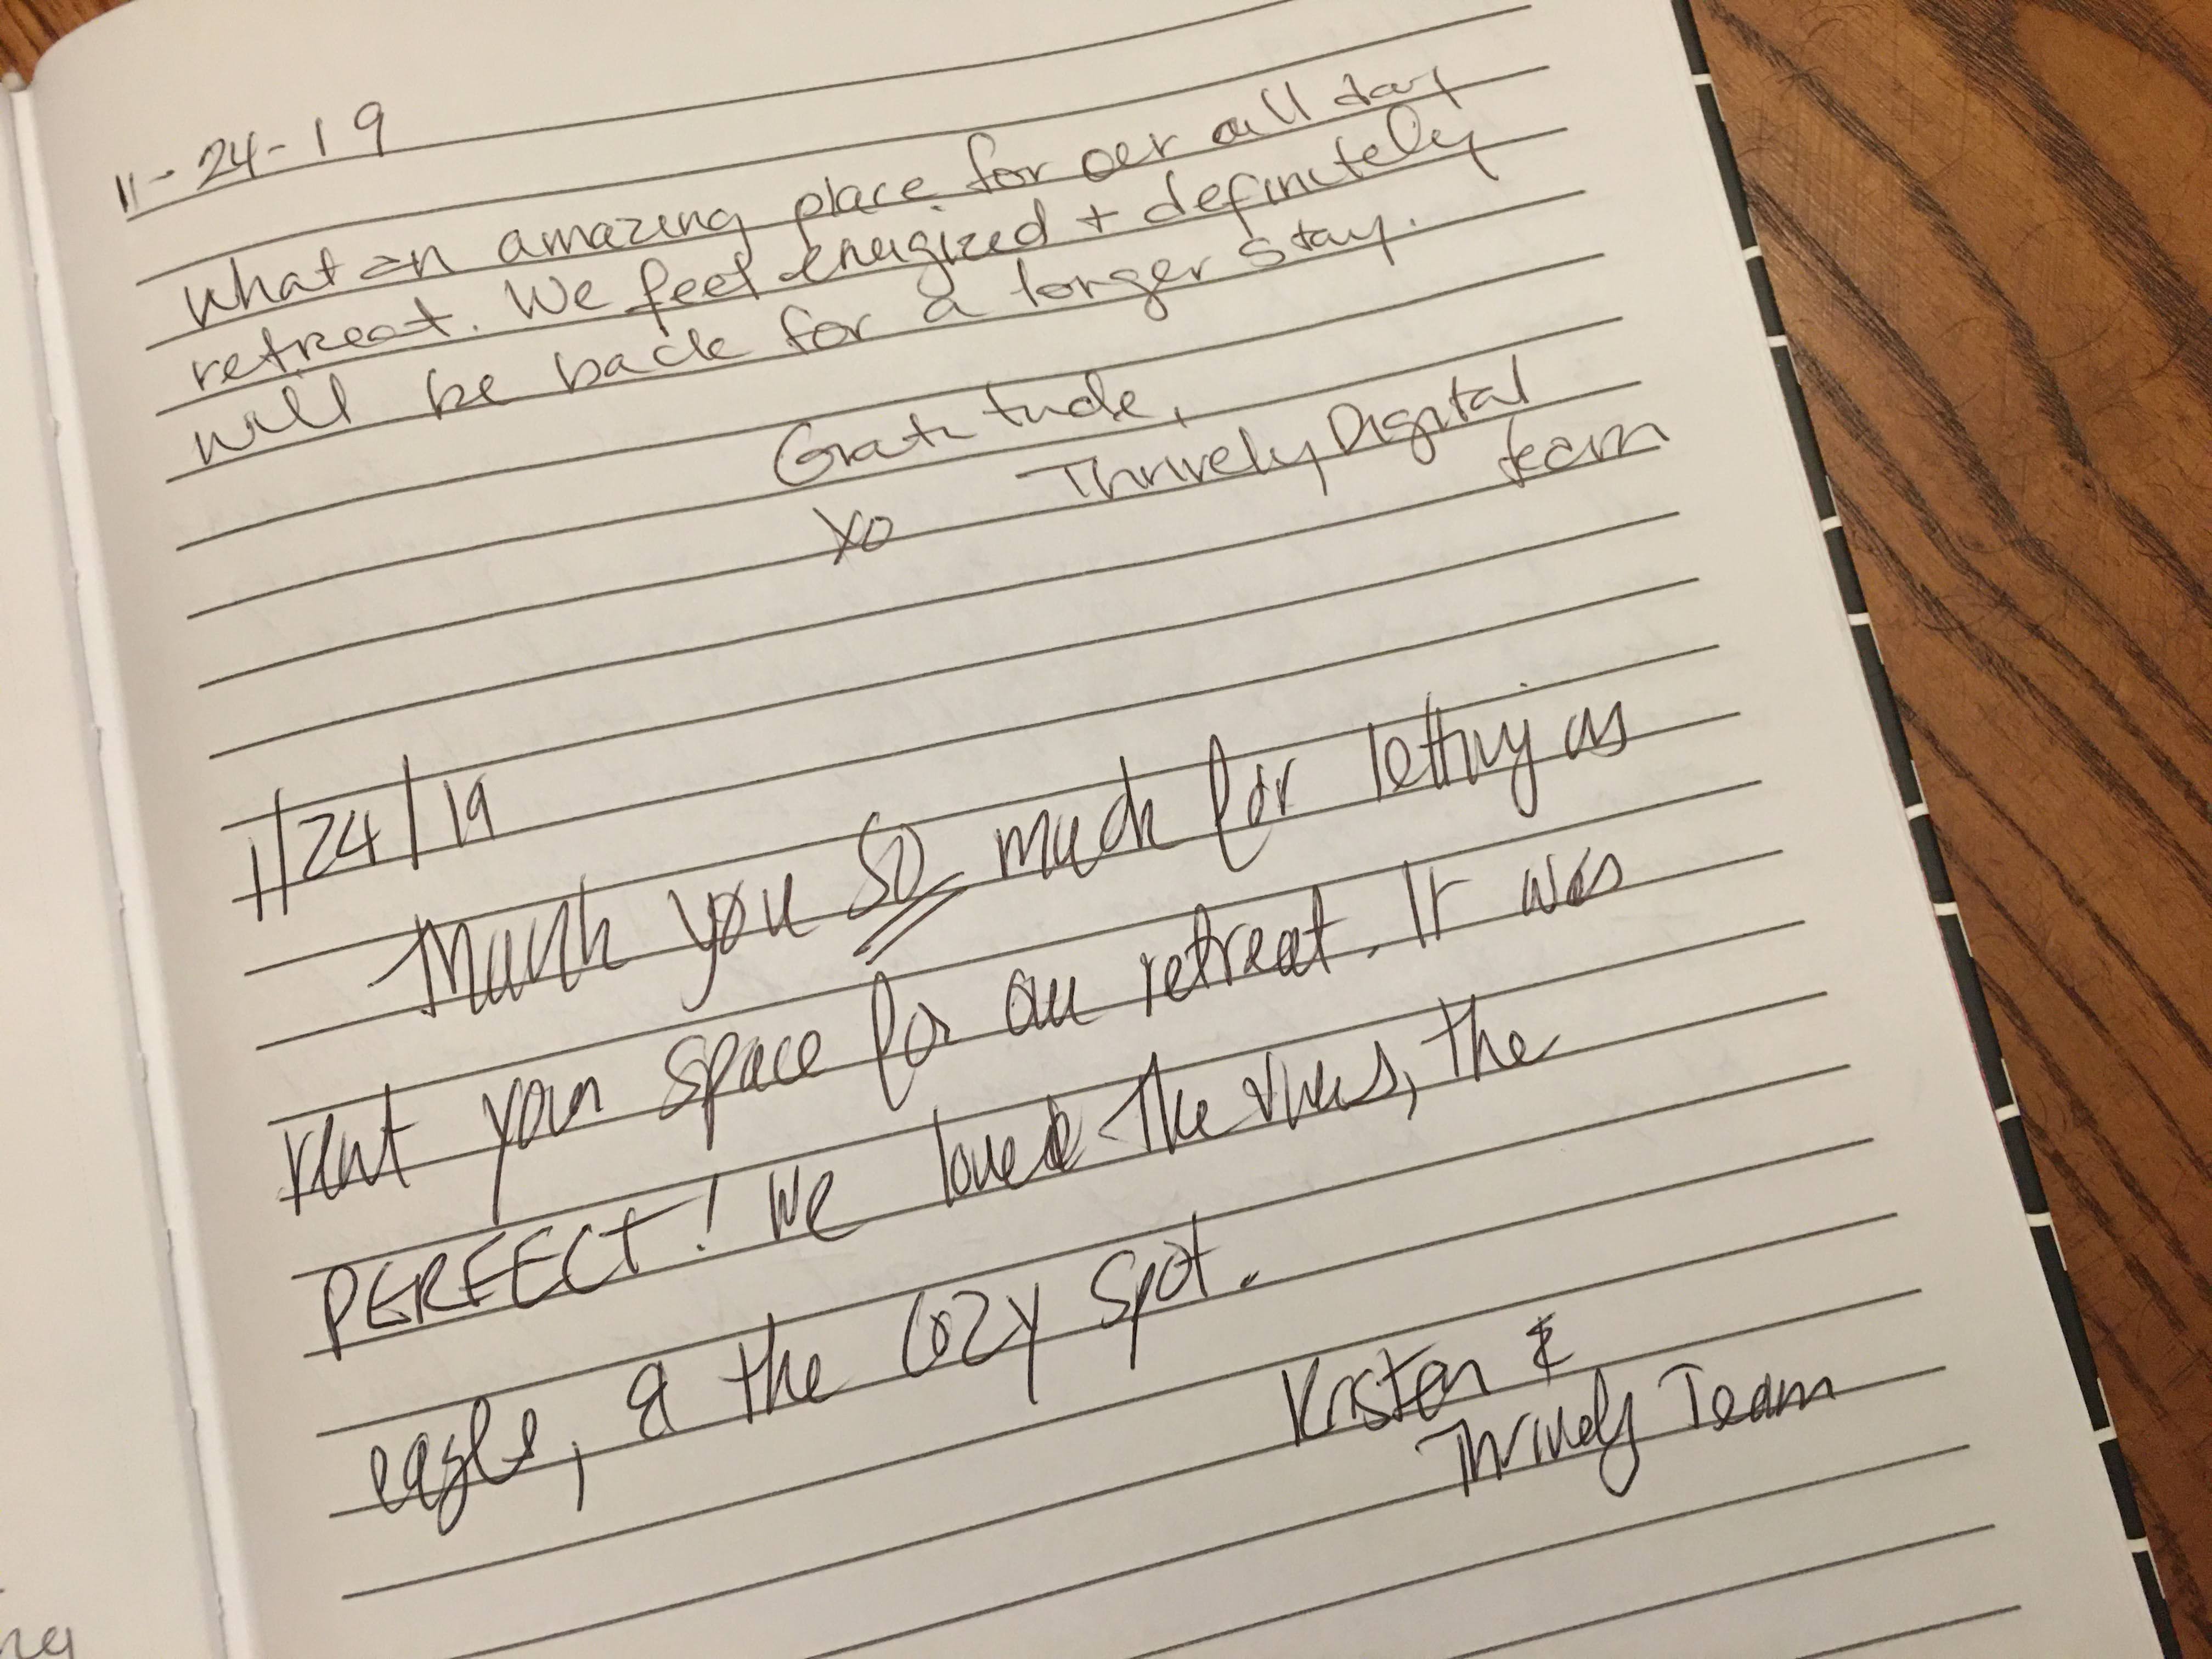 11-24-19
What an amazing place for our all day
retreat. We feel energized + definitely
will be back for a longer stay.
Gratitude,
XO Thrively Digital
team
1/24/19
Thank you so much for letting us
rent your space for our retreat. It was
PERFECT! We loved the views, the
eagle, & the cozy spot.
Kristen &
Thrively Team